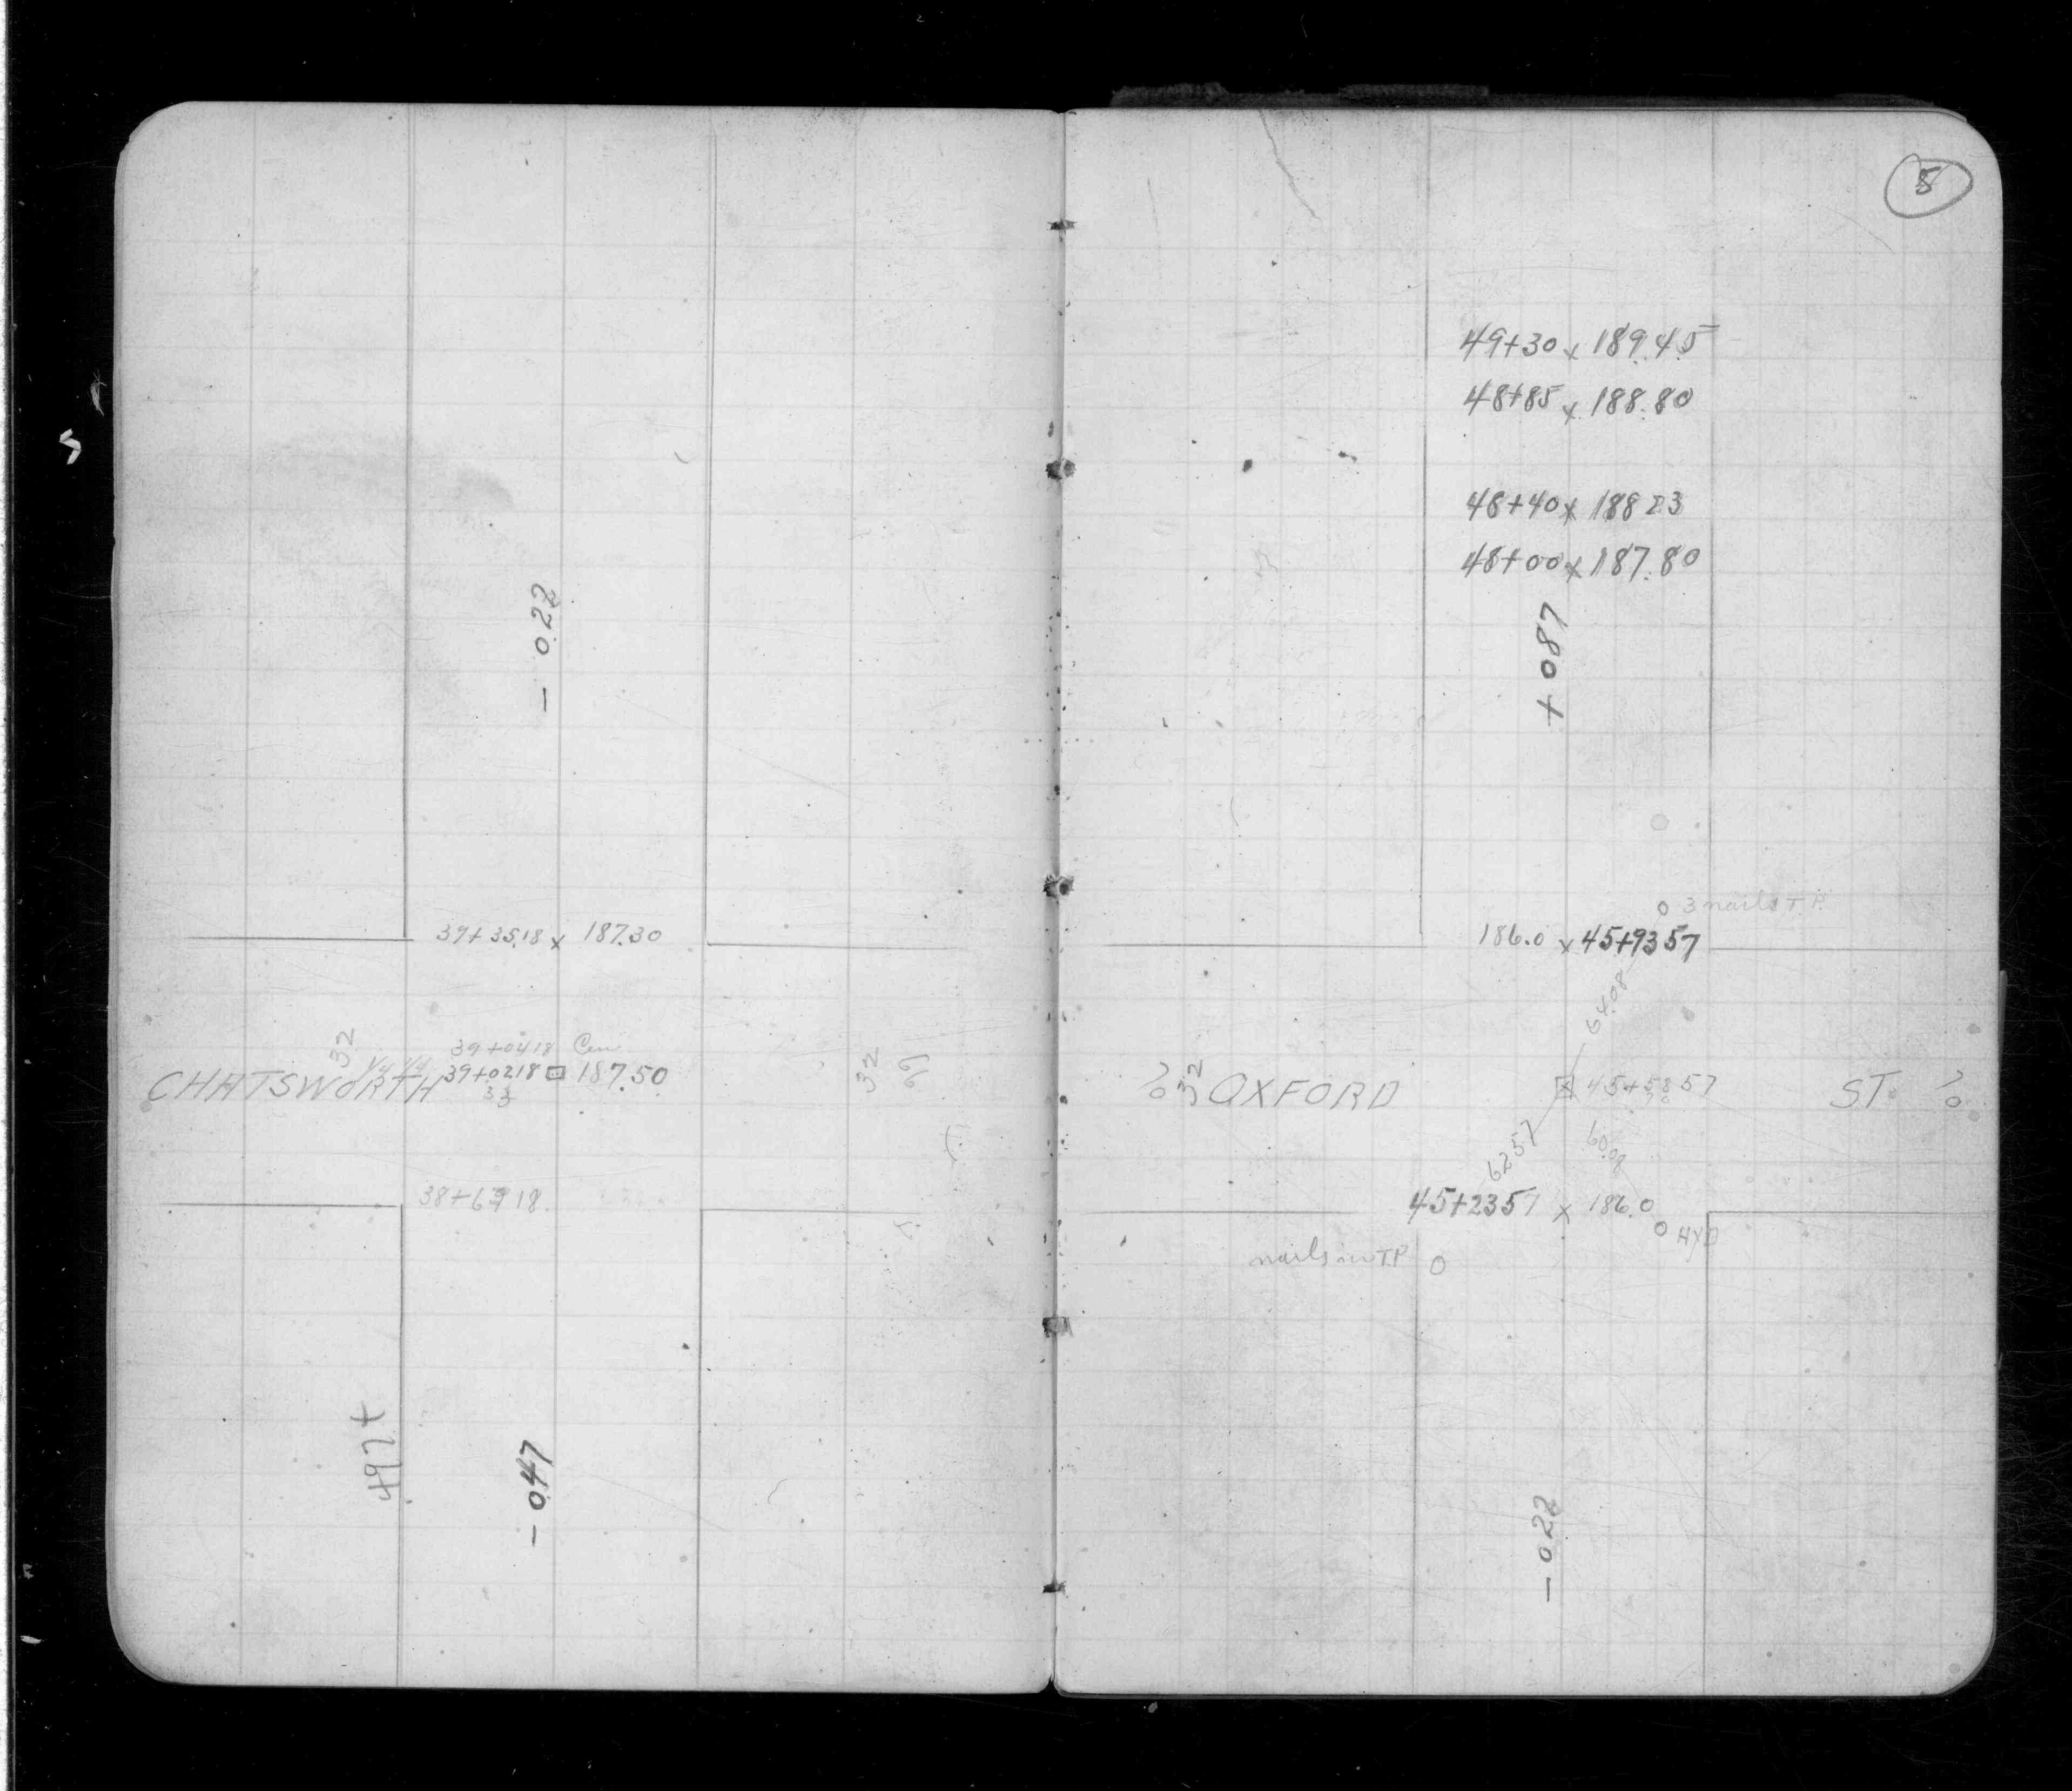 - 0.22
39+35.18 x 187.30
32
39+0418 Cen
CHATSWORTH 39+0218 □ 187.50
33
32
38+6918
497+
- 0.47
5
49+30 x 189.45
48+85 x 188.80
48+40 x 188 23
48+00 x 187.80
+ 0.87
o 3 nails T.P.
186.0 x 45+9357
64.08
32 OXFORD
45+5857
ST.
62.57
60.08
45+2357 x 186.0
o HYD
nails in T.P. o
- 0.22